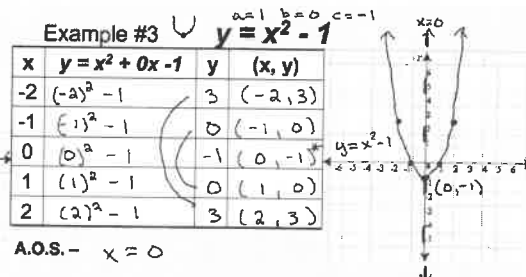 a=1 b=0 c=-1
Example #3 ∪ y = x² - 1
x y = x² + 0x -1 y (x, y)
-2 (-2)² - 1 3 (-2, 3)
-1 (-1)² - 1 0 (-1, 0)
0 (0)² - 1 -1 (0, -1)*
1 (1)² - 1 0 (1, 0)
2 (2)² - 1 3 (2, 3)
A.O.S. – x = 0
x=0
y=x²-1
(0,-1)